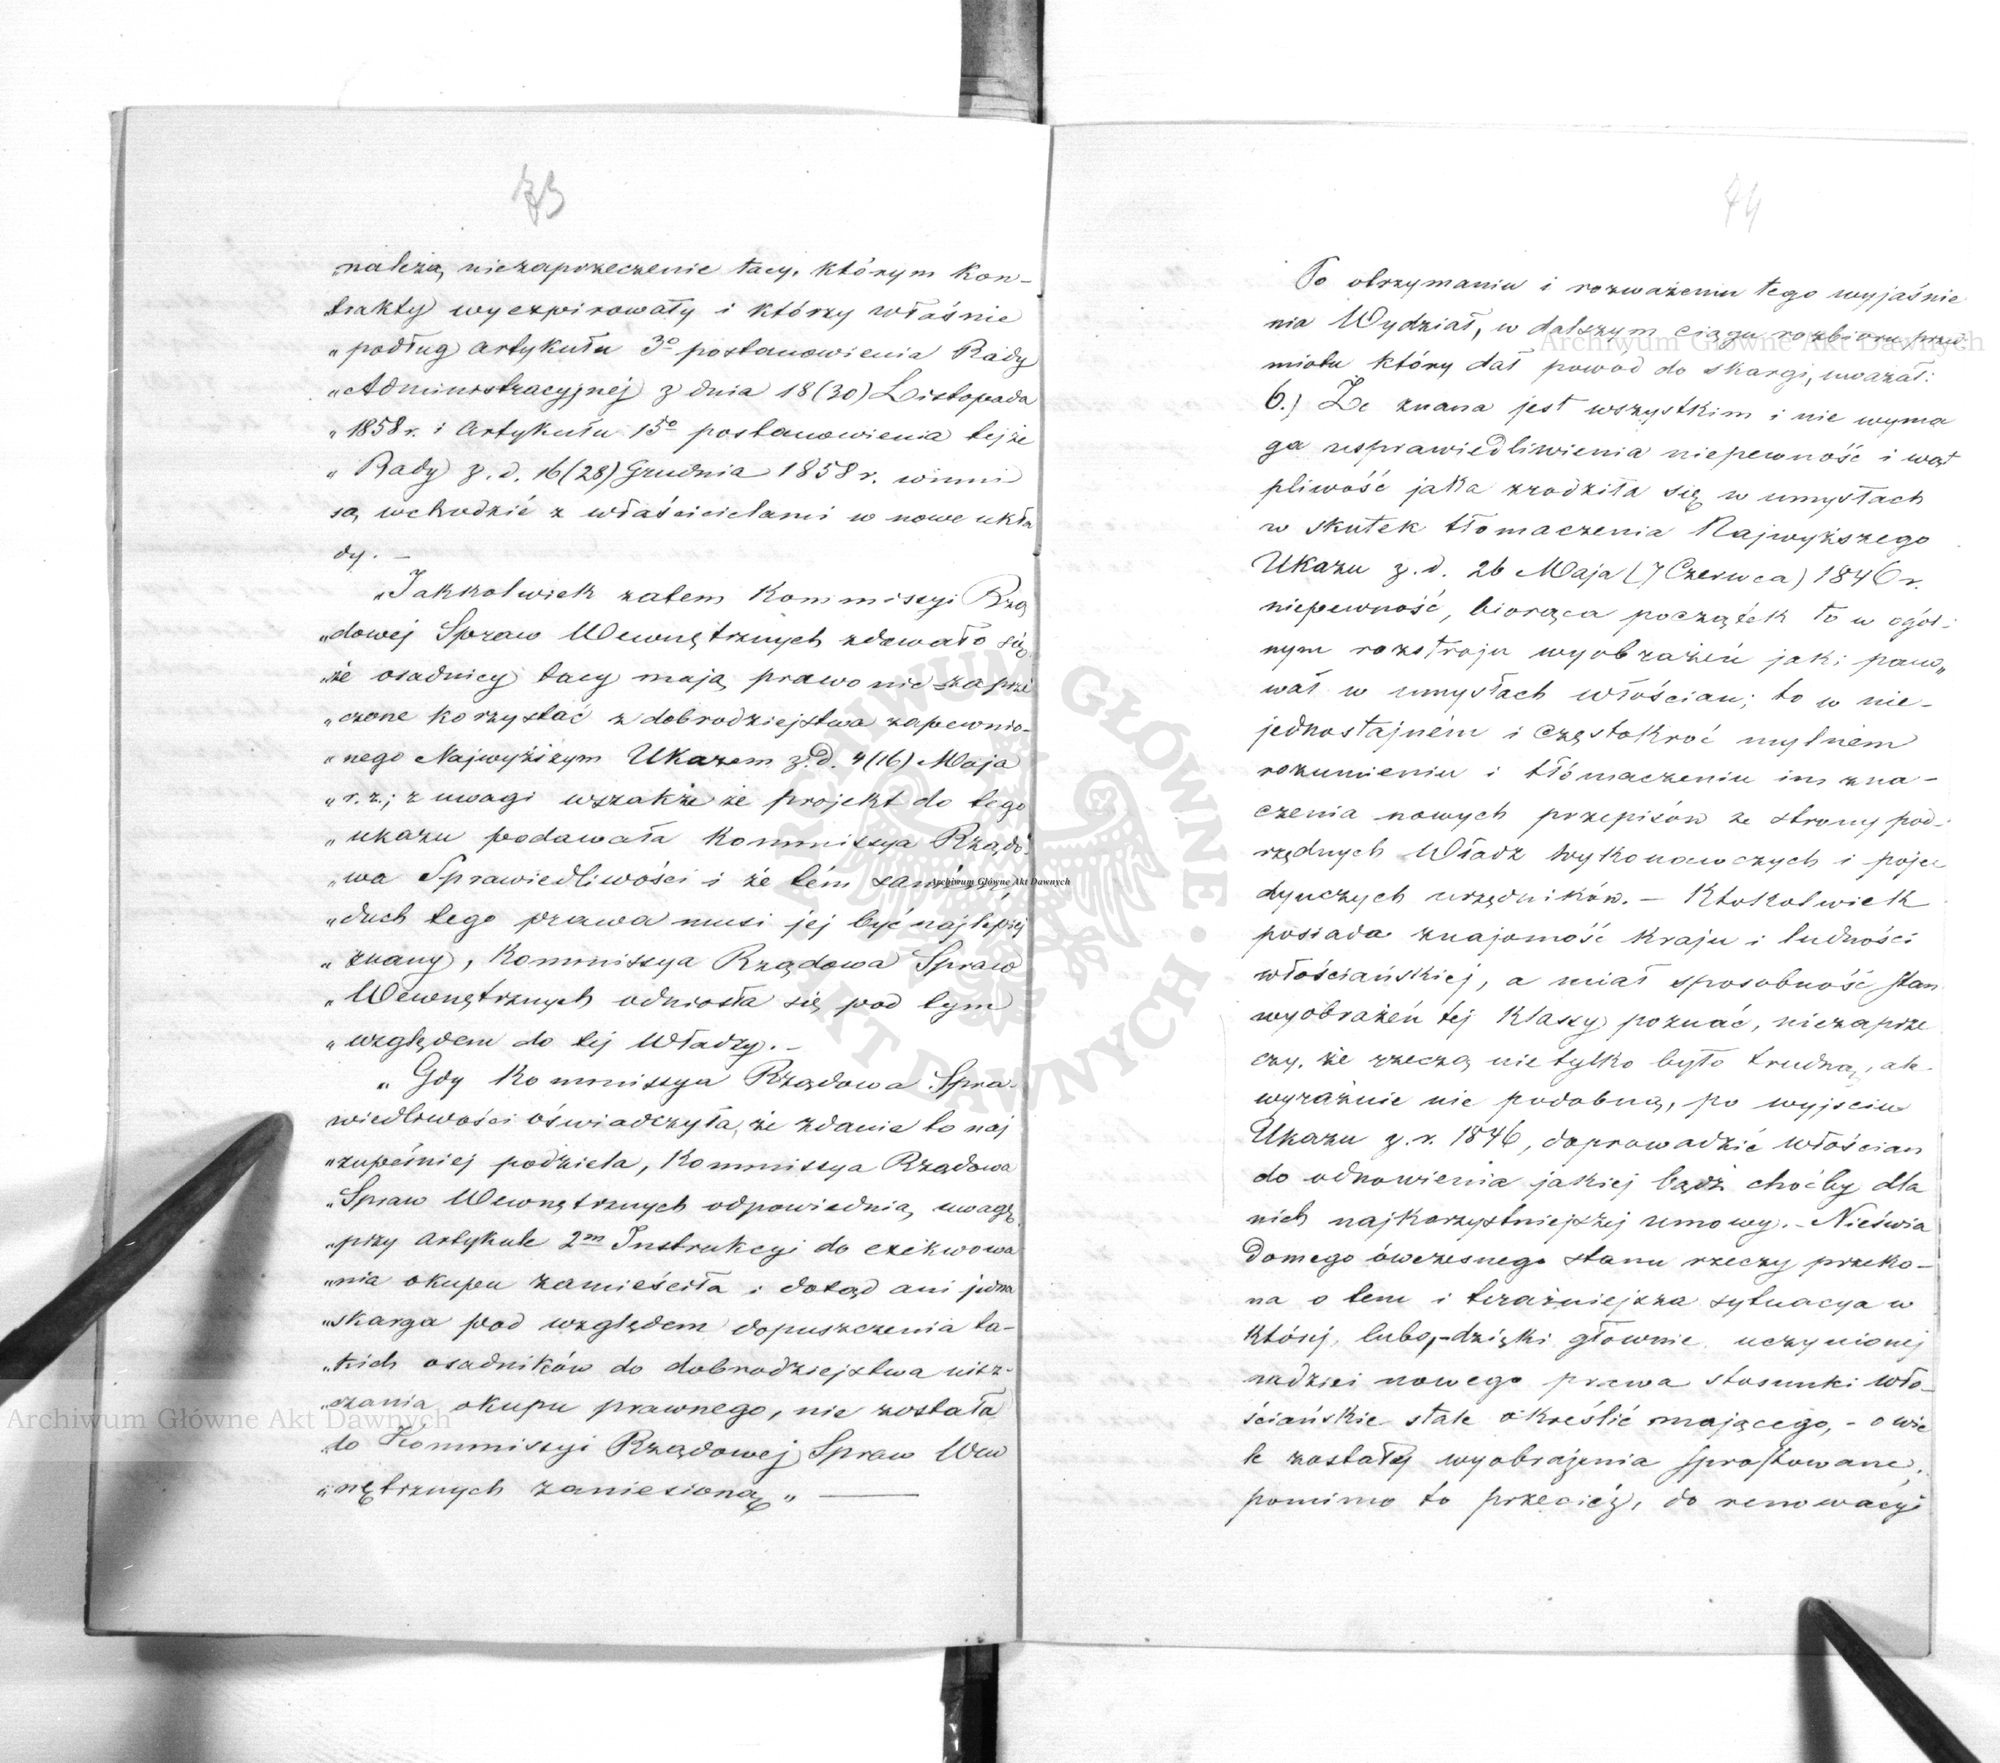 73
„należą niezaprzeczenie tacy, którym kon-
trakty wyexpirowały i którzy właśnie
„podług artykułu 3º postanowienia Rady
„Administracyjnéj z dnia 18 (30) Listopada
„1858 r. i artykułu 15º postanowienia tejże
„Rady z. d. 16 (28) Grudnia 1858 r. winni
są wchodzić z właścicielami w nowe ukła
dy. —
„Jakkolwiek zatem Kommissyi Rzą
„dowej Spraw Wewnętrznych zdawało się
„że osadnicy tacy mają prawo nie zaprze
„czone korzystać z dobrodziejstwa zapewnio-
„nego Najwyższym Ukazem z. d. 4 (16) Maja
„r. z.; z uwagi wszakże że projekt do tego
„ukazu podawała Kommissya Rządo-
„wa Sprawiedliwości i że tém samém
„duch tego prawa musi jej być najlepiej
„znany, Kommissya Rządowa Spraw
„Wewnętrznych odniosła się pod tym
„względem do tej Władzy. —
„Gdy Kommissya Rządowa Spra-
wiedliwości oświadczyła, że zdanie to naj
„zupełniej podziela, Kommissya Rządowa
„Spraw Wewnętrznych odpowiednią uwagę
„przy artykule 2m Instrukcyi do exekwowa
„nia okupu zamieściła i dotąd ani jedna
„skarga pod względem dopuszczenia ta-
„kich osadników do dobrodziejstwa uisz-
„czania okupu prawnego, nie została
do Kommissyi Rządowej Spraw Wew
„nętrznych zaniesioną„ —
74
Po otrzymaniu i rozważeniu tego wyjaśnie
nia Wydział, w dalszym ciągu rozbioru przed
miotu który dał powód do skargi, uważał:
6.) Że znana jest wszystkim i nie wyma
ga usprawiedliwienia niepewność i wąt
pliwość jaka zrodziła się w umysłach
w skutek tłomaczenia Najwyższego
Ukazu z. d. 26 Maja (7 Czerwca) 1846 r.
niepewność, biorąca początek to w ogól-
nym rozstroju wyobrażeń jaki pano„
wał w umysłach włościan; to w nie-
jednostajném i częstokroć mylném
rozumieniu i tłómaczeniu im zna-
czenia nowych przepisów ze strony pod-
rzędnych Władz wykonawczych i poje
dynczych urzędników. — Ktokolwiek
posiada znajomość kraju i ludności
włościańskiej, a miał sposobność stan
wyobrażeń tej klassy poznać, niezaprze
czy, że rzeczą nie tylko było trudną, ale
wyraźnie nie podobną, po wyjściu
Ukazu z. r. 1846, doprowadzić włościan
do odnowienia jakiej bądź choćby dla
nich najkorzystniejszej umowy. — Nieświa
domego ówczesnego stanu rzeczy przeko-
na o tem i teraźniejsza sytuacya w
której, lubo, dzięki głównie uczynionej
nadziei nowego prawa stosunki wło-
ściańskie stale określić mającego, - o wie
le zostały wyobrażenia sprostowane,
pomimo to przecież, do renowacyi
Archiwum Główne Akt Dawnych
Archiwum Główne Akt Dawnych
Archiwum Główne Akt Dawnych
ARCHIWUM GŁÓWNE · AKT DAWNYCH ·